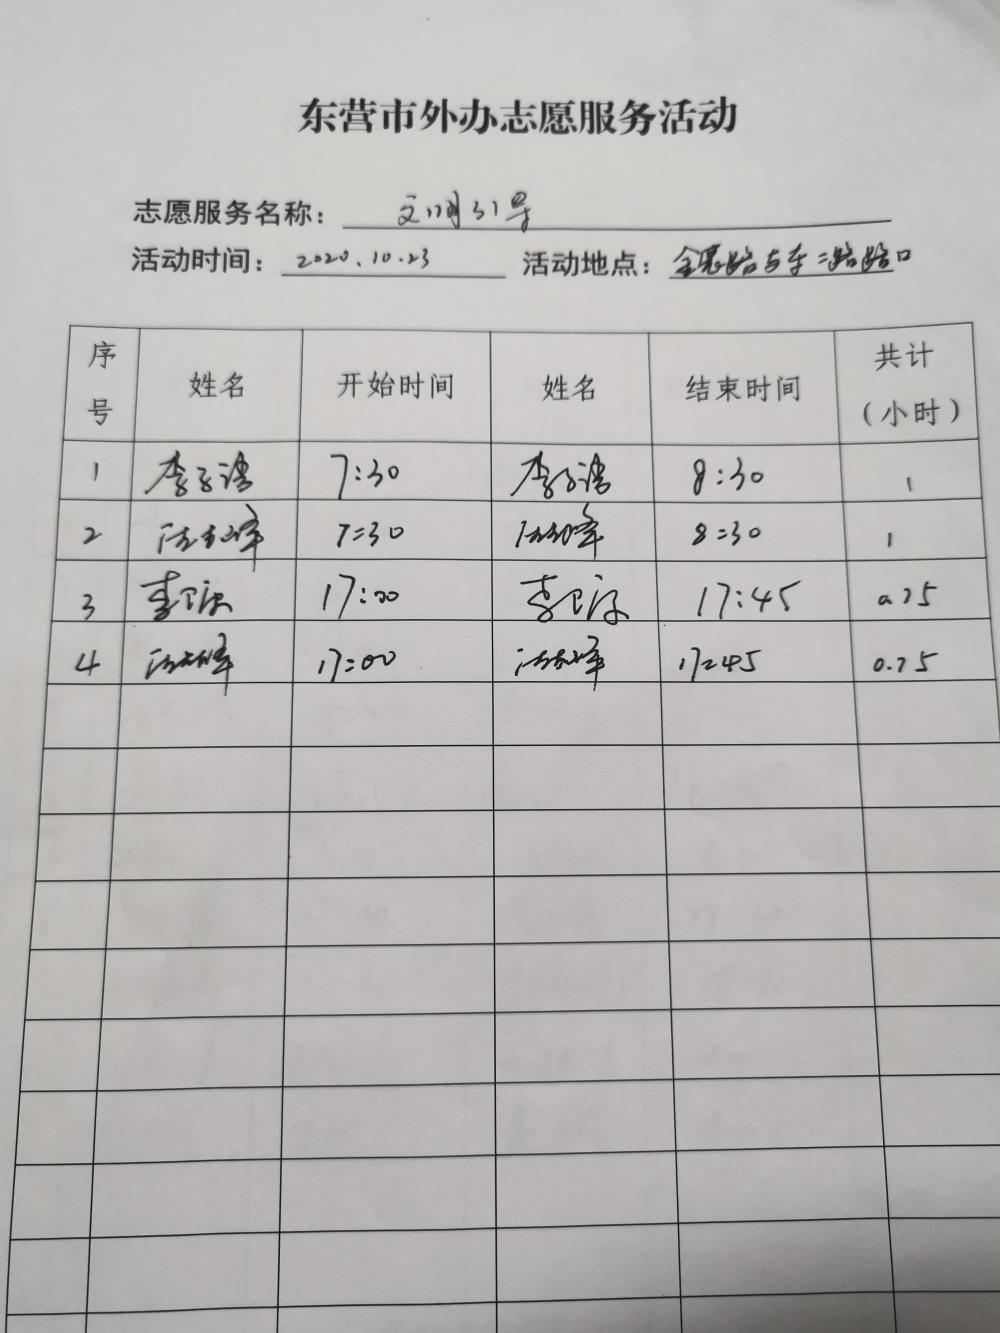 东营市外办志愿服务活动
志愿服务名称：文明引导
活动时间：2020.10.23 活动地点：路与东二路路口
序号 姓名 开始时间 姓名 结束时间 共计（小时）
1 李 7:30 李 8:30 1
2 7:30 8:30 1
3 李 17:00 李 17:45 0.75
4 17:00 17:45 0.75